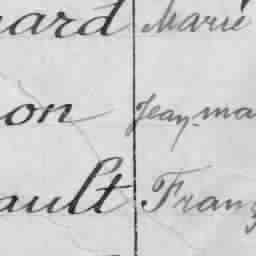 uard Marie
on Jean-ma
ault Franç